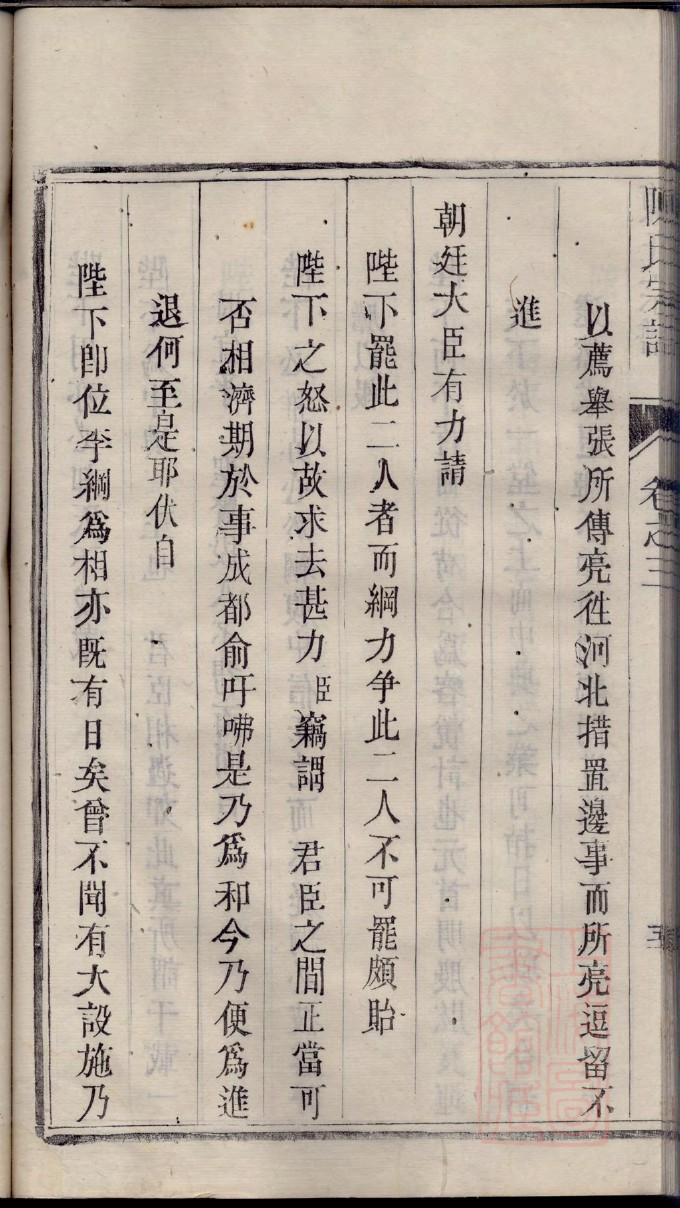 陳氏宗譜 卷之三 五
以薦舉張所傅亮徃河北措置邊事而所亮逗留不
進
朝廷大臣有力請
陛下罷此二人者而綱力争此二人不可罷頗貽
陛下之怒以故求去甚力臣竊謂 君臣之間正當可
否相濟期於事成都俞吁咈是乃爲和今乃便爲進
退何至是耶伏自
陛下卽位李綱爲相亦既有日矣曾不聞有大設施乃